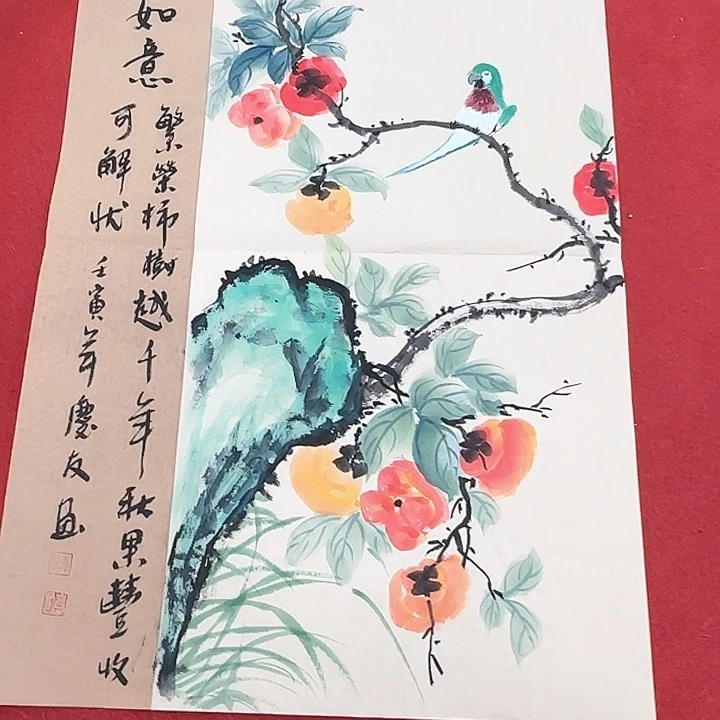 如意
繁榮柿樹越千年秋果豐收
可解状
壬寅年慶友画